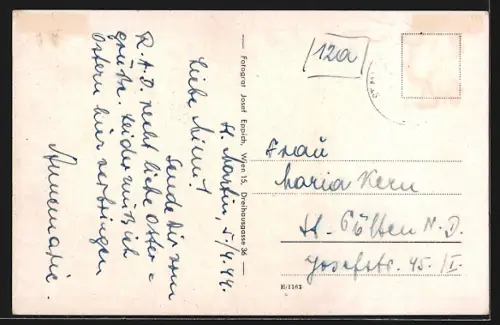 St. Martin, 5/4.44.
Liebe Mimi!
Sende Dir vom
R.A.D. recht liebe Oster=
grüße. Leider muß ich
Ostern hier verbringen
Annemarie.
— Fotograf Josef Eppich, Wien 15, Dreihausgasse 36 —
12a
Frau
Maria Kern
St. Pölten N.D.
Josefstr. 45/I.
E/1163